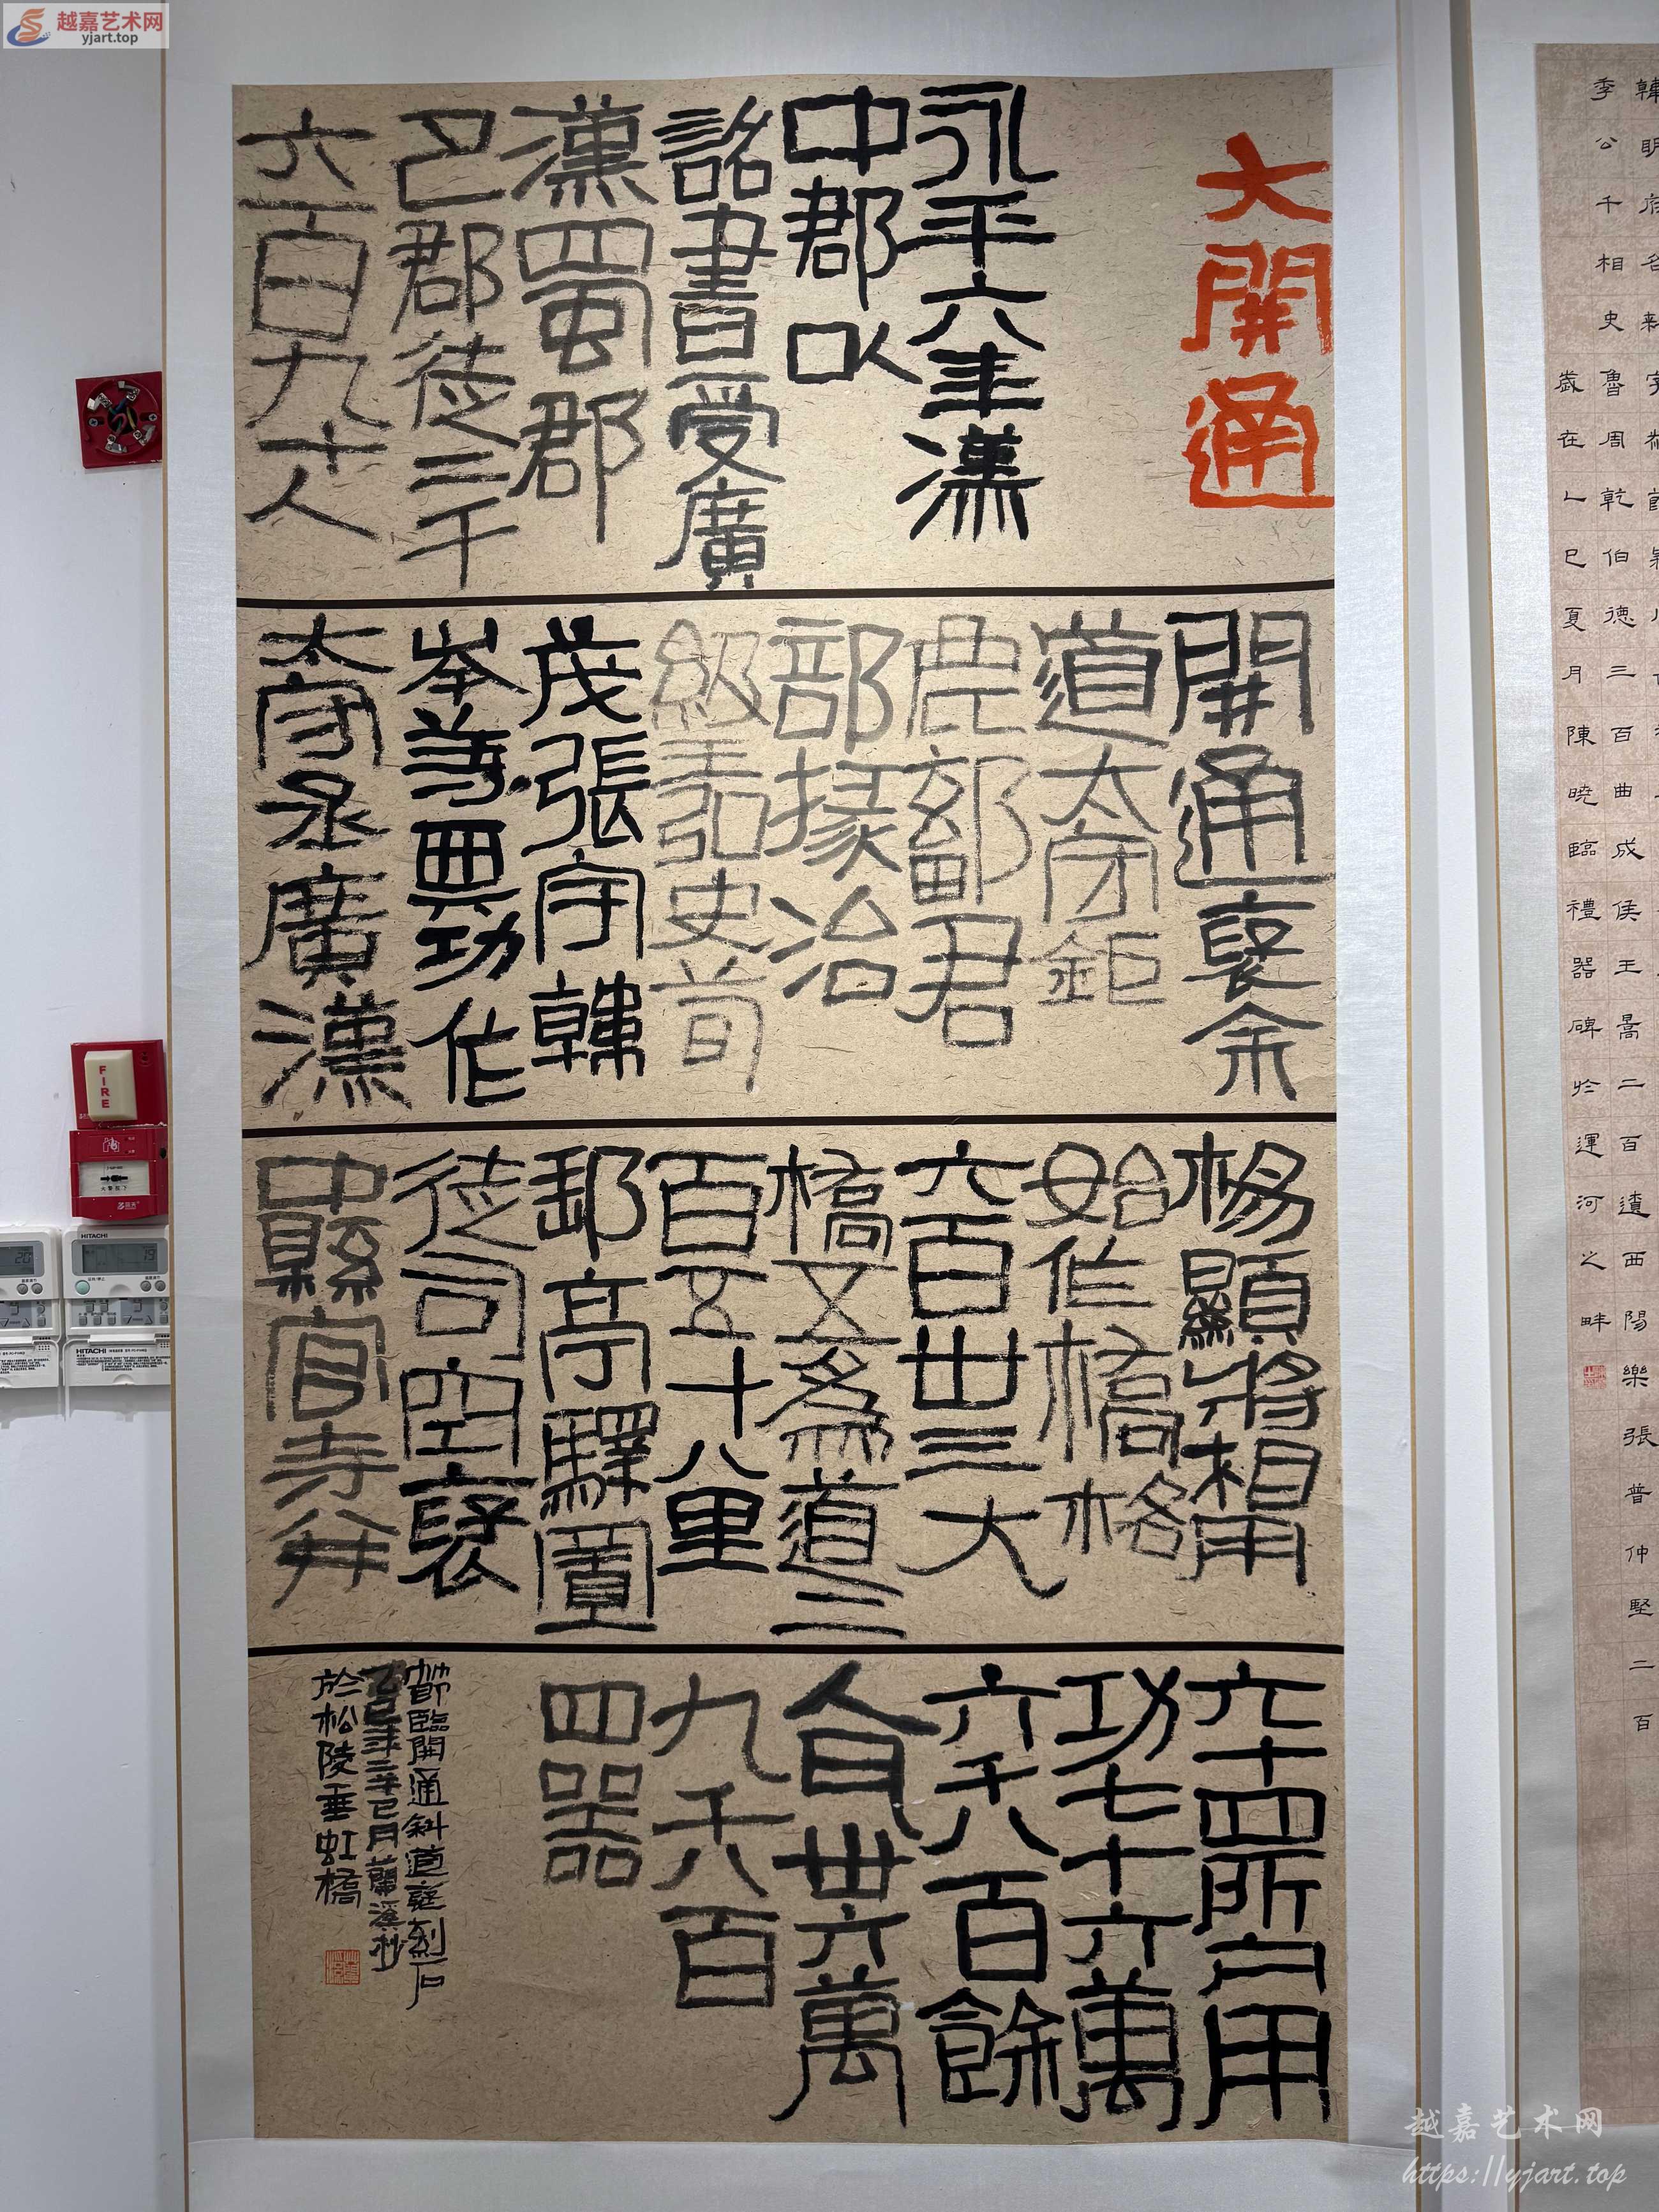 越嘉艺术网
yjart.top
大開通
永平六年漢
中郡以
詔書受廣
漢蜀郡
巴郡徒二千
六百九十人
開通褒余
道太守鉅
鹿鄐君
部掾治
級王弘史荀
茂張宇韓
岑等典功作
太守丞廣漢
楊顯將相用
始作橋格
六百卅三大
橋五為道二
百五十八里
郵亭驛置
徒司空褒
中縣官寺并
六十四所凡用
功七十六萬
六千八百餘
人瓦卅六萬
九千八百
四器
節臨開通斜道庭刻石
乙巳年三年巳月蘭溪
於松陵垂虹橋
季公千相史魯周乾伯德三百曲成侯王暠二百遺西陽樂張普仲堅二百
歲在乙巳夏月陳曉臨禮器碑於運河之畔
FIRE
HITACHI
HITACHI
越嘉艺术网
https://yjart.top